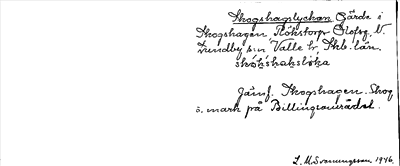 Skogshagslyckan Gärde i
Skogshagen Rökstorp Olofsg. V.
Lundby sn Valle hd. Skb. län.
skókshakslöka
Jämf. Skogshagen. Skog
o. mark på Billingsområdet.
L. M. Svanungsson 1946.